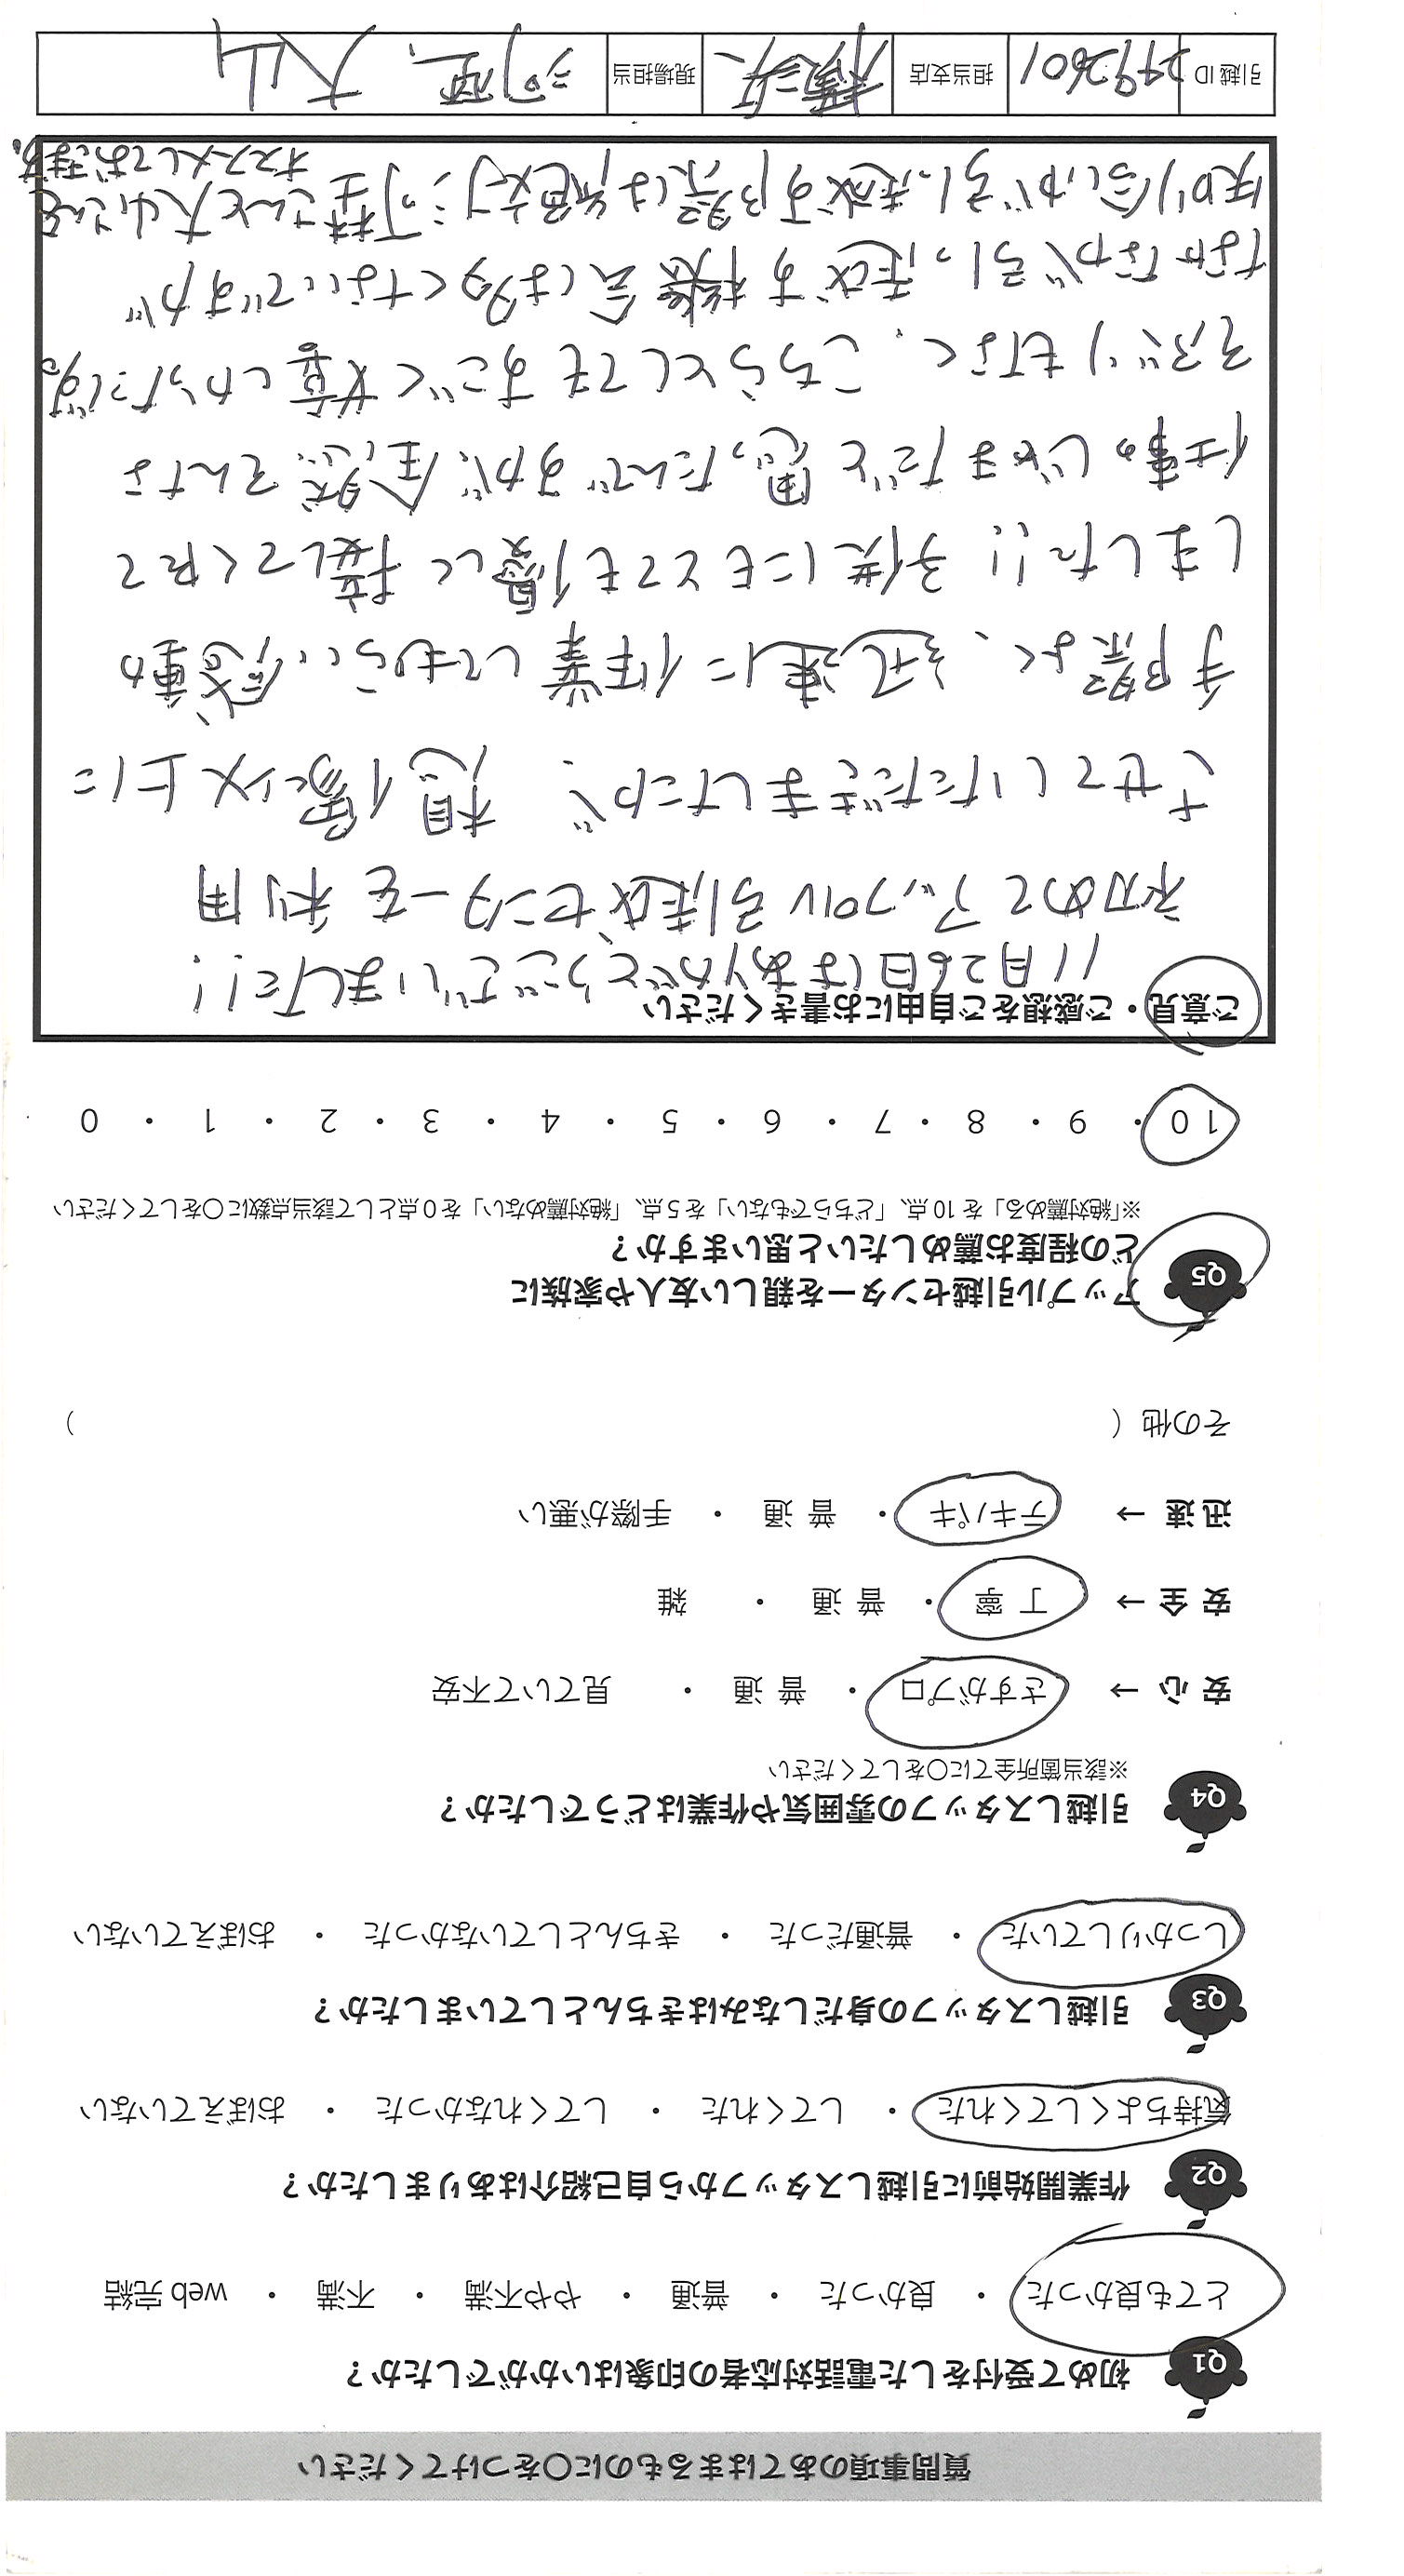 質問事項のあてはまるものに○をつけてください
Q1 初めて受付をした電話対応者の印象はいかがでしたか？
とても良かった ・ 良かった ・ 普通 ・ やや不満 ・ 不満 ・ web 完結
Q2 作業開始前に引越しスタッフから自己紹介はありましたか？
気持ちよくしてくれた ・ してくれた ・ してくれなかった ・ おぼえていない
Q3 引越しスタッフの身だしなみはきちんとしていましたか？
しっかりしていた ・ 普通だった ・ きちんとしていなかった ・ おぼえていない
Q4 引越しスタッフの雰囲気や作業はどうでしたか？
※該当箇所全てに○をしてください
安 心 → さすがプロ ・ 普 通 ・ 見ていて不安
安 全 → 丁 寧 ・ 普 通 ・ 雑
迅 速 → テキパキ ・ 普 通 ・ 手際が悪い
その他 （ ）
Q5 アップル引越センターを親しい友人や家族に
どの程度お薦めしたいと思いますか？
※「絶対薦める」を 10 点、「どちらでもない」を 5 点、「絶対薦めない」を 0 点として該当点数に○をしてください
10 ・ 9 ・ 8 ・ 7 ・ 6 ・ 5 ・ 4 ・ 3 ・ 2 ・ 1 ・ 0
ご意見・ご感想をご自由にお書きください
11月26日はありがとうございました!!
初めてアップル引越センターを利用
させていただきましたが、想像以上に
手際よく、迅速に作業してもらい、感動
しました!! 子供にもとても優しく接してくれて
仕事のじゃまだと思ったんですが、全然そんな
そぶりもなく、こちらとしてもすごく嬉しかったです。
なかなか引っ越す機会は多くないですが
知り合いが引っ越す際は絶対河埜さんと大山さんを
オススメしておきます。
引越 ID 2992601 担当支店 横浜 現場担当 河埜、大山